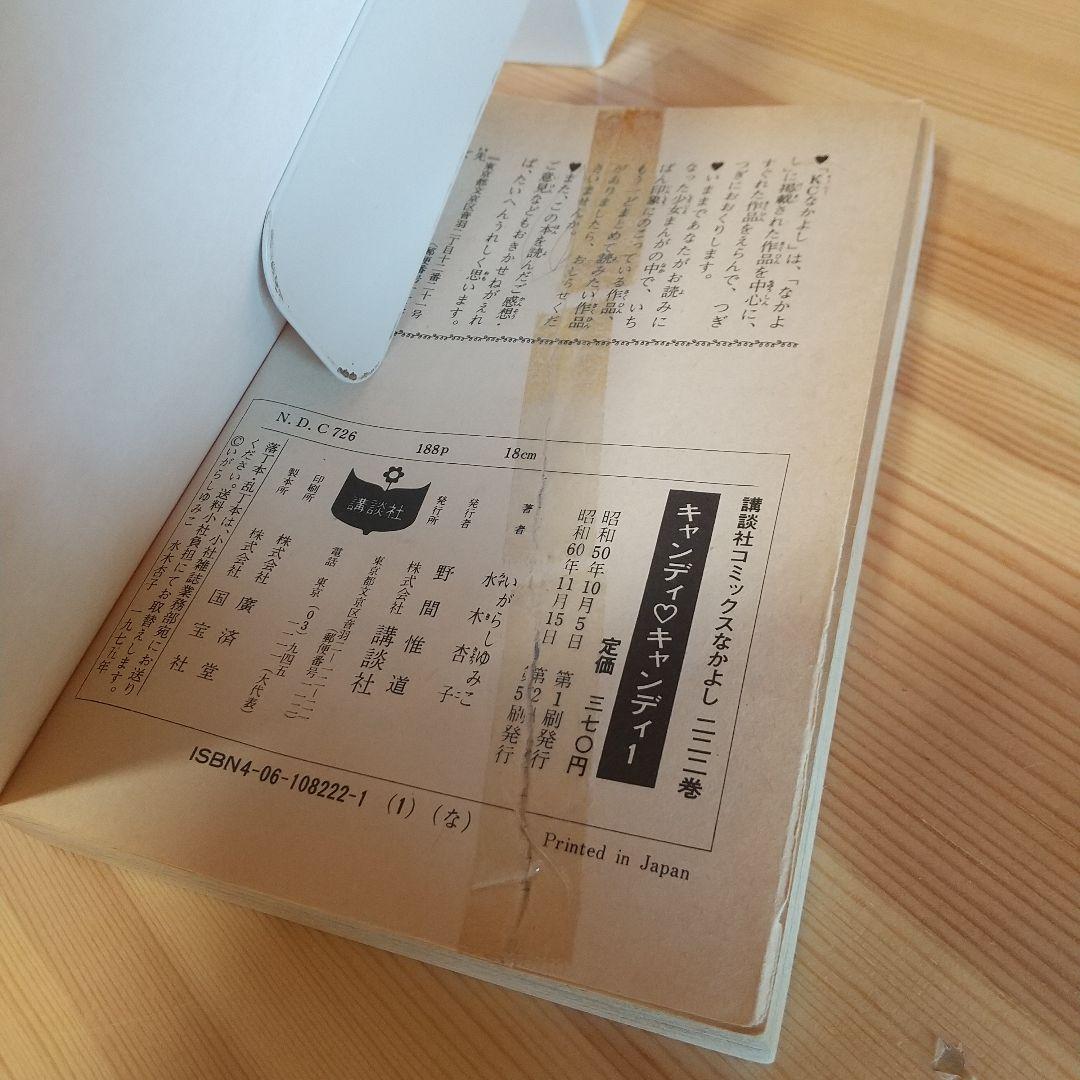 ♥「KCなかよし」は、「なかよ
し」に掲載された作品を中心に、
すぐれた作品をえらんで、つぎ
つぎにおおくりします。
♥いままであなたがお読みに
なった少女まんがの中で、いち
ばん印象にのこっている作品、
もう一どまとめて読みたい作品
がありましたら、おしらせくだ
さいませんか。
♥また、この本を読んだご感想・
ご意見などもおきかせねがえれ
ば、たいへんうれしく思います。
東京都文京区音羽二丁目十二番二十一号
N.D.C 726 188p 18cm
講談社コミックスなかよし 二二二巻
キャンディ♡キャンディ 1
定価 三七〇円
昭和50年10月5日 第1刷発行
昭和60年11月15日 第2 刷発行
著者 いがらしゆみこ
水木杏子
発行者 野間惟道
発行所 株式会社 講談社
東京都文京区音羽二―一二―二一
電話 東京(03) 一一一(大代表)
講談社
印刷所 株式会社 廣済堂
製本所 株式会社 国宝社
落丁本・乱丁本は、小社雑誌業務部宛にお送り
ください。送料小社負担にてお取替えします。
©いがらしゆみこ 水木杏子 一九七五年
ISBN4-06-108222-1 (1) (な)
Printed in Japan